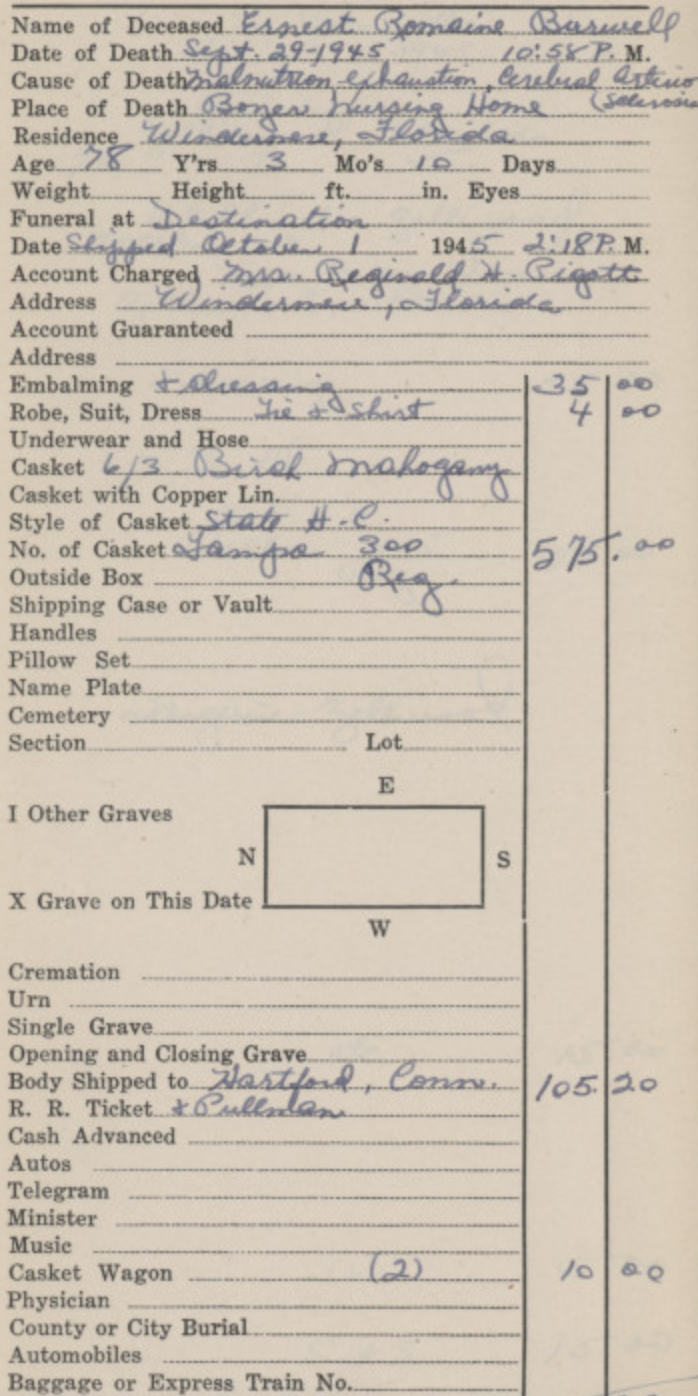 Name of Deceased Ernest Romaine Burwell
Date of Death Sept. 29-1945 10:58 P. M.
Cause of Death Malnutrition exhaustion, Cerebral Arterio
Place of Death Boyer Nursing Home (Sclerosis
Residence Windermere, Florida
Age 78 Y'rs 3 Mo's 10 Days
Weight Height ft. in. Eyes
Funeral at Destination
Date Shipped October 1 1945 2:18 P. M.
Account Charged Mrs. Reginald H. Pigott
Address Windermere, Florida
Account Guaranteed
Address
Embalming + dressing 35 00
Robe, Suit, Dress Tie + Shirt 4 00
Underwear and Hose
Casket 6/3 Birch Mahogany
Casket with Copper Lin.
Style of Casket State H.C.
No. of Casket Tampa 300 575.00
Outside Box Reg.
Shipping Case or Vault
Handles
Pillow Set
Name Plate
Cemetery
Section Lot
E
I Other Graves
N S
X Grave on This Date
W
Cremation
Urn
Single Grave
Opening and Closing Grave
Body Shipped to Hartford, Conn. 105.20
R. R. Ticket + Pullman
Cash Advanced
Autos
Telegram
Minister
Music
Casket Wagon (2) 10 00
Physician
County or City Burial
Automobiles
Baggage or Express Train No.